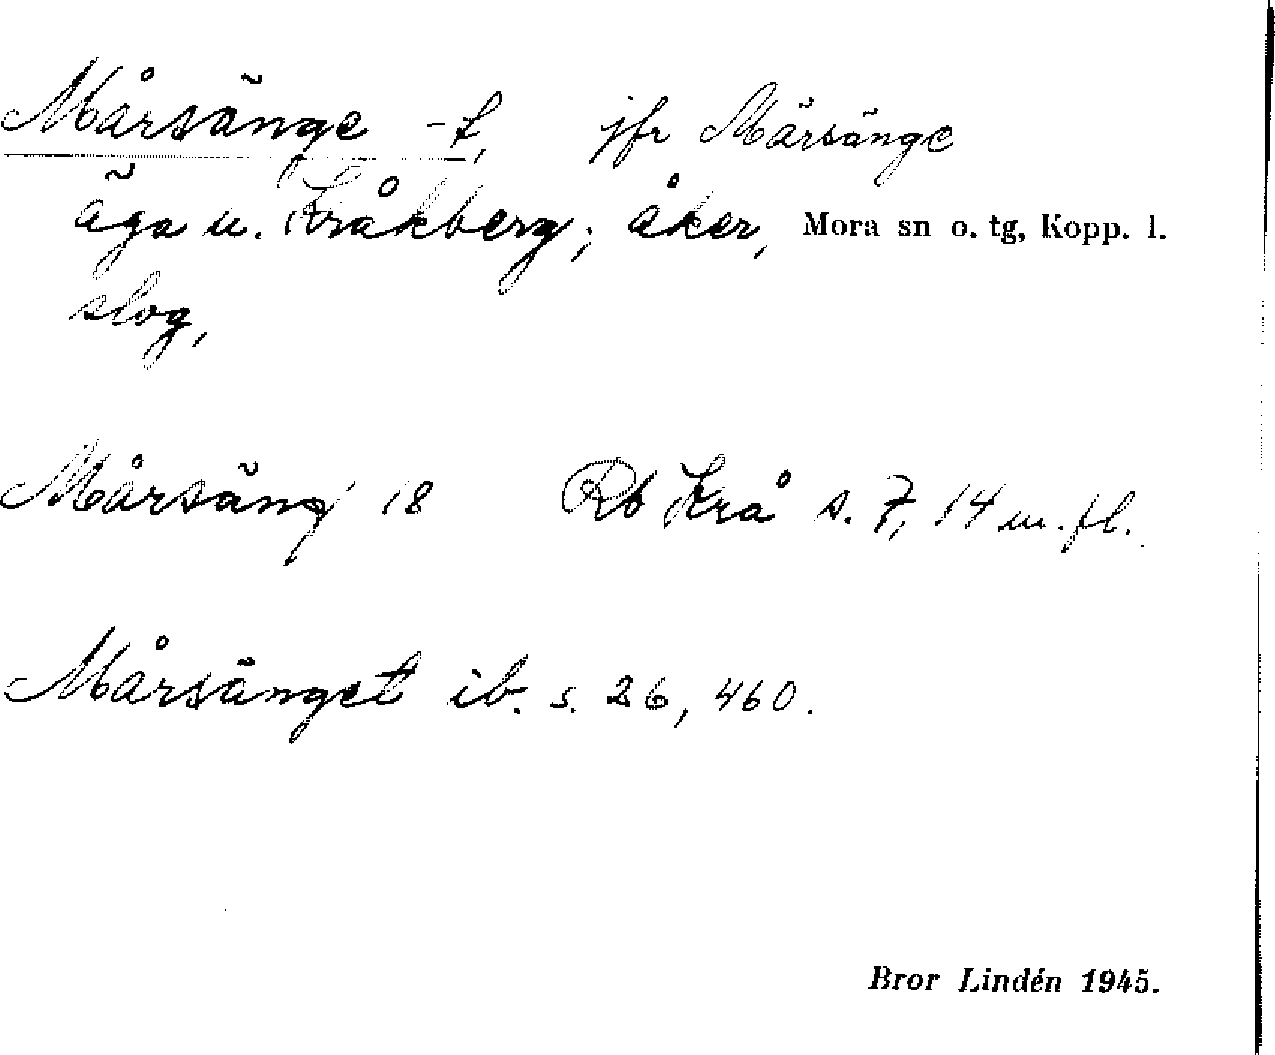 Mårsänge -t, jfr Märsänge
äga u. Kråkberg; åker, Mora sn o. tg, Kopp. l.
slog,
Mårsäng 18 Rb Krå s. 7, 14 m. fl.
Mårsänget ib. s. 26, 460.
Bror Lindén 1945.